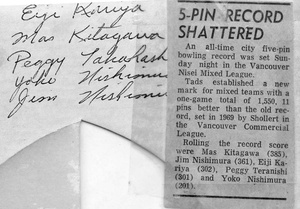 Eiji Kariya
Mas Kitagawa
Peggy
Yoko Nishimura
Jim Nishimura
5-PIN RECORD
SHATTERED
An all-time city five-pin
bowling record was set Sun-
day night in the Vancouver
Nisei Mixed League.
Tads established a new
mark for mixed teams with a
one-game total of 1,550, 11
pins better than the old rec-
ord, set in 1969 by Shollert in
the Vancouver Commercial
League.
Rolling the record score
were Mas Kitagawa (385),
Jim Nishimura (361), Eiji Ka-
riya (302), Peggy Teranishi
(301) and Yoko Nishimura
(201).